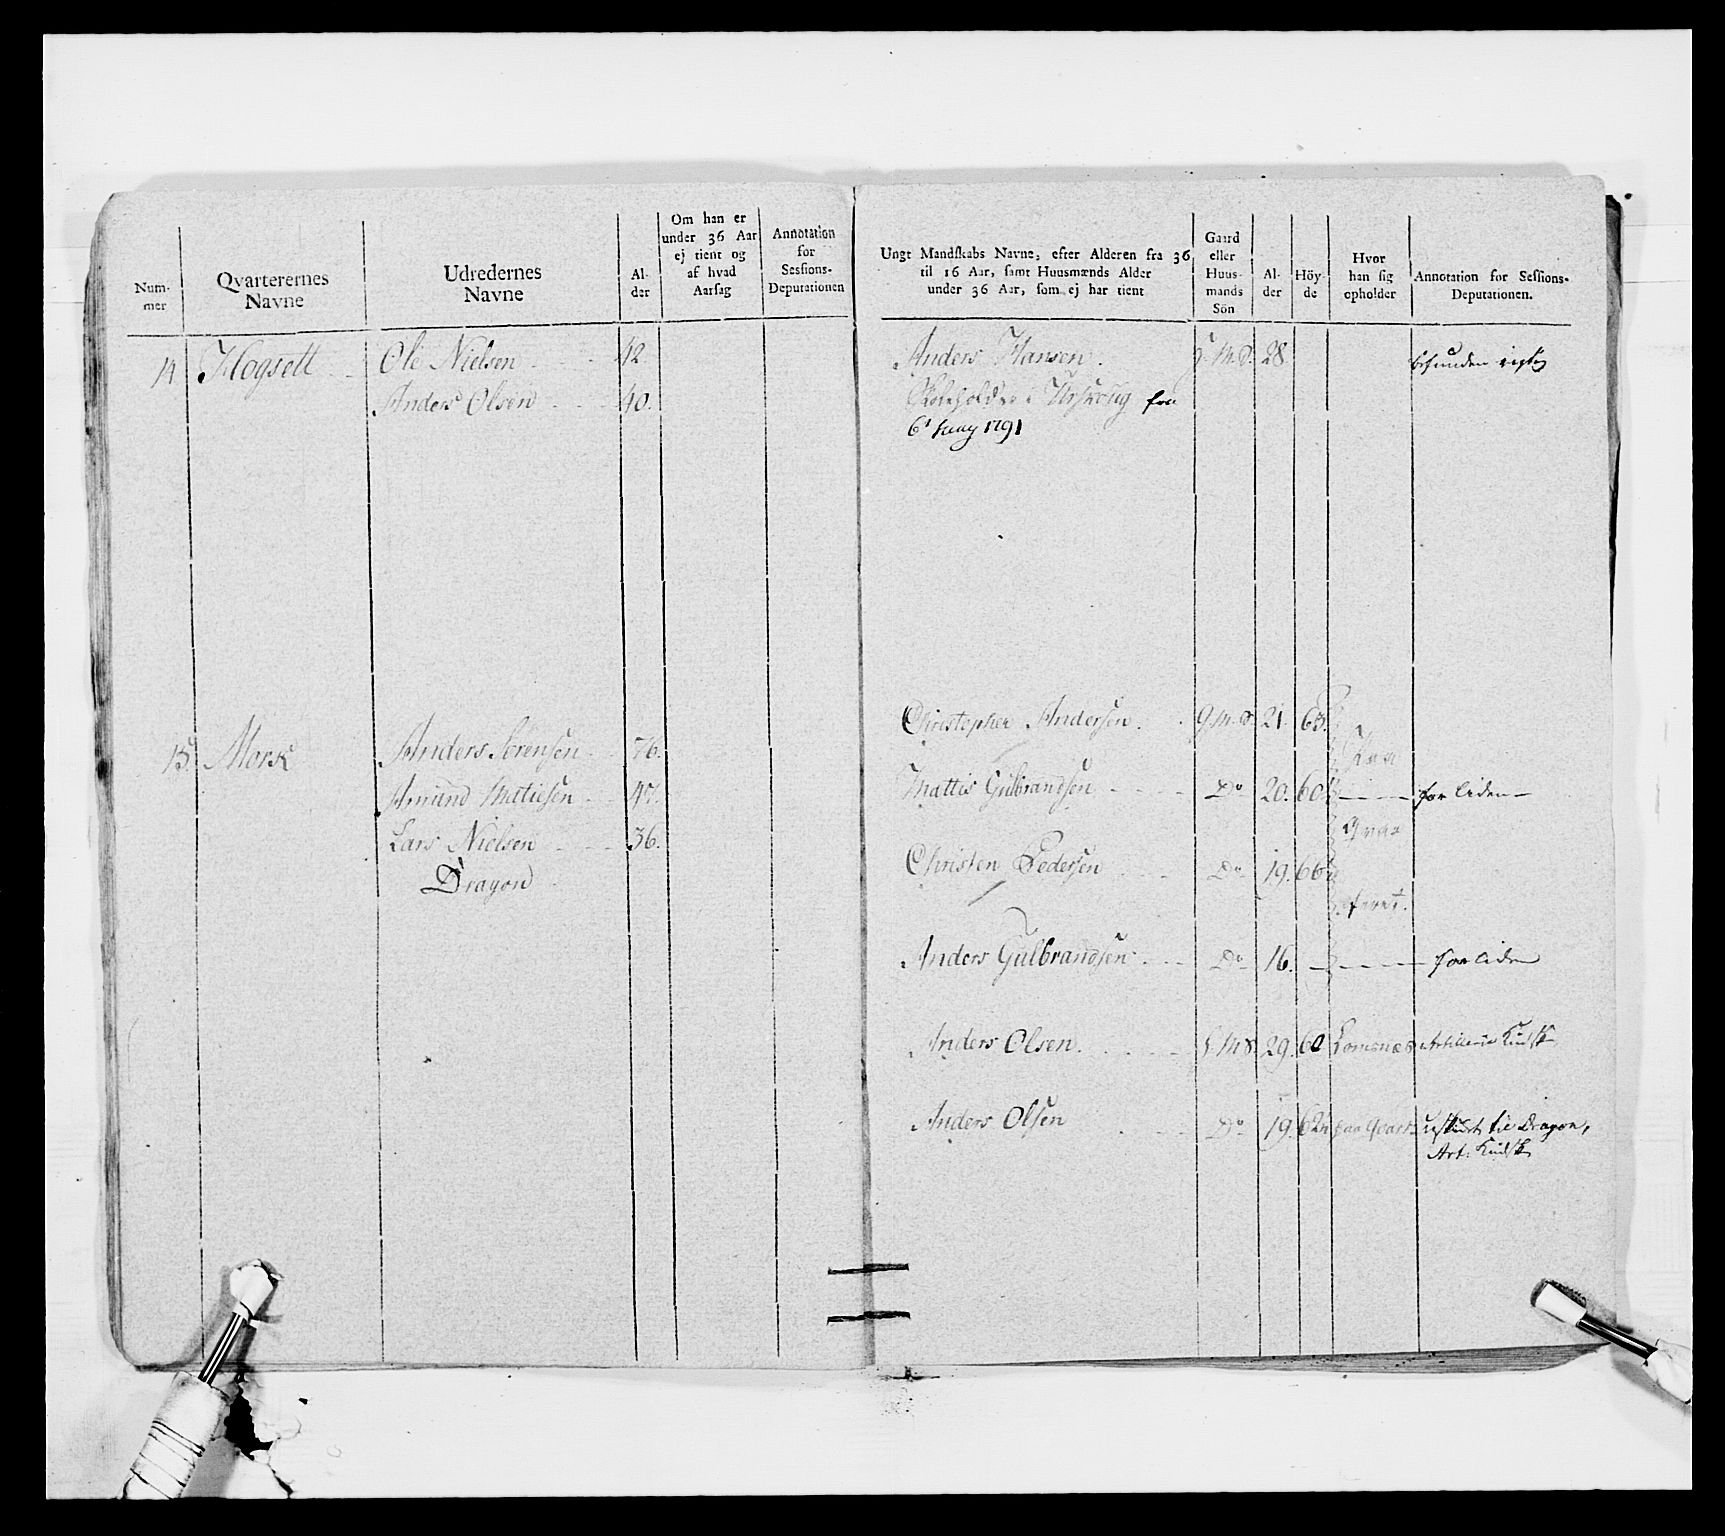 Num-
mer
Qvarterernes
Navne
Udredernes
Navne
Al-
der
Om han er
under 36 Aar
ej tient og
af hvad
Aarsag
Annotation
for
Sessions-
Deputationen
14 Hogsett Ole Nielsen 42
Anders Olsen 40.
15. Mork Anders Sörensen 76.
Amund Matiesen 47.
Lars Nielsen 36.
Dragon
Ungt Mandskabs Navne, efter Alderen fra 36
til 16 Aar, samt Huusmænds Alder
under 36 Aar, som ej har tient
Gaard
eller
Huus-
mands
Sön
Al-
der
Höy-
de
Hvor
han sig
opholder
Annotation for Sessions-
Deputationen.
Anders Hansen. G. M. S. 28. befunden rigtig
Skoleholder i Urskoug fra
1791
Christopher Andersen. G. M. S. 21. 63.
Paa
Mattis Gulbrandsen Do 20. 60 for liden
Qvar
Christen Pedersen Do 19. 66
teret.
Anders Gulbrandsen Do 16. for liden
Anders Olsen. 29. 60 Artillerie Kudsk
Anders Olsen Do 19. 62 paa Qvart. udskudt til Dragon,
Art: Kudsk